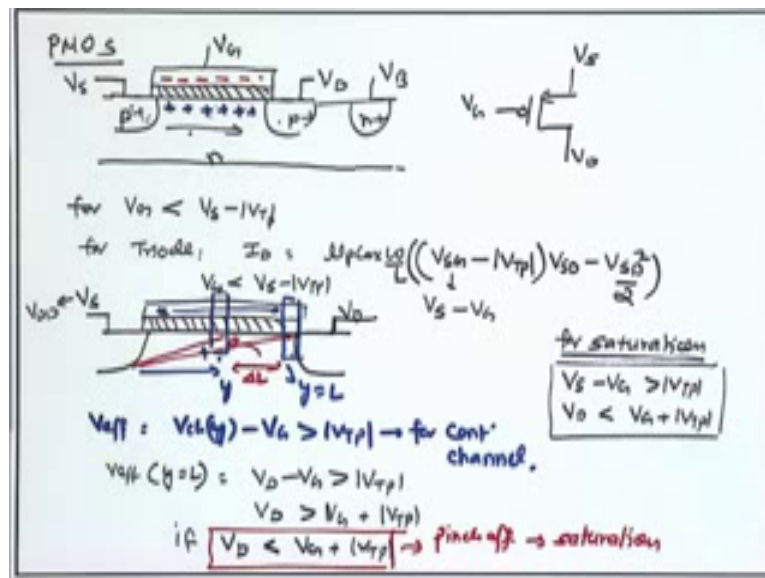 PMOS
VG
VS
VD
VB
p+
p+
n+
n
VS
VG
VD
for VG < VS - |VTp|
for Triode, ID = μp Cox W/L ((VSG - |VTp|) VSD - VSD²/2)
VS - VG
VG < VS - |VTp|
VDD ← VS
VD
y
ΔL
y = L
for saturation
VS - VG > |VTp|
VD < VG + |VTp|
Veff = Vch(y) - VG > |VTp| → for cont' channel.
Veff (y=L) = VD - VG > |VTp|
VD > VG + |VTp|
if VD < VG + |VTp| → pinch off → saturation